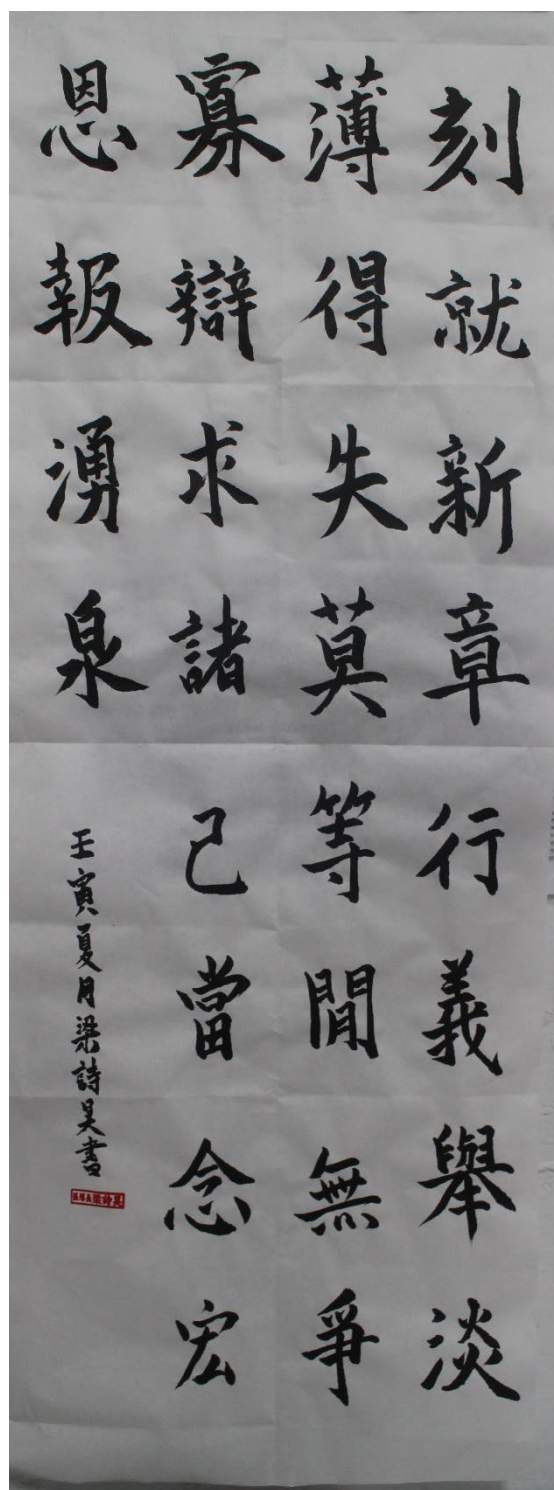 刻就新章行義舉淡
薄得失莫等閒無爭
寡辯求諸己當念宏
恩報湧泉
壬寅夏月梁詩昊書